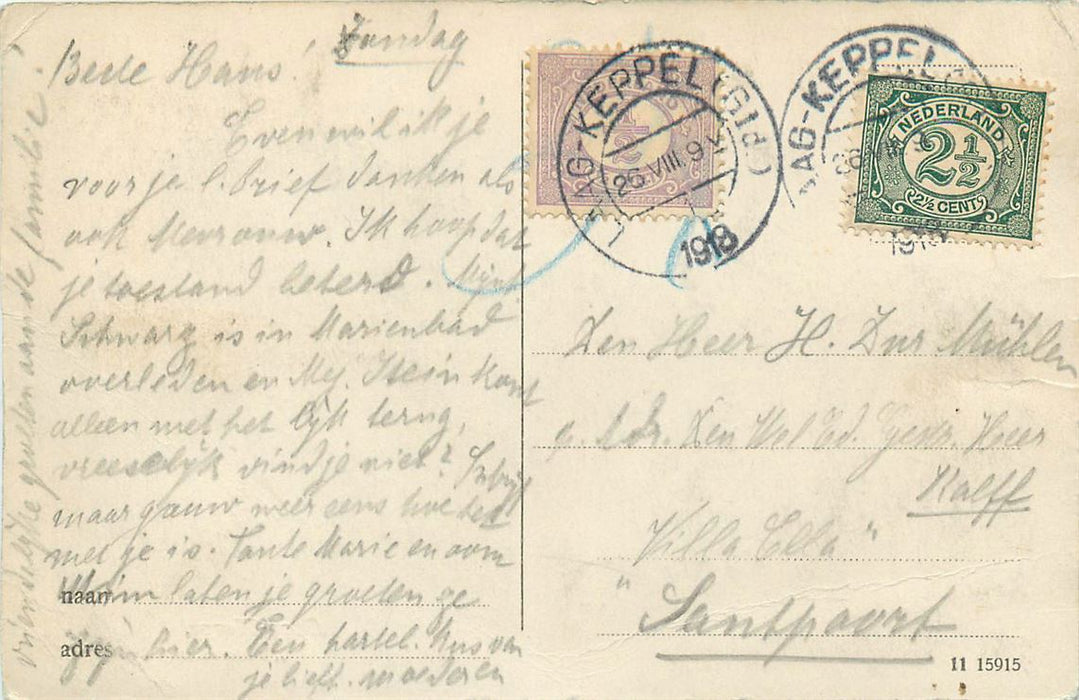 Zondag
Beste Hans!
Even wil ik je
voor je l. brief danken als
ook Mevrouw. Ik hoop dat
je toestand beterd. Mijnh.
Schwarz is in Marienbad
overleden en Mej. Stein komt
alleen met het lijk terug,
vreeselijk vind je niet? Schrijf
maar gauw weer eens hoe het
met je is. Tante Marie en oom
laten je groeten ze
zijn hier. Een hartel. kus van
je liefh. moeder
vriendelijke groeten aan de familie.
naam
adres
LAAG-KEPPEL (Gld)
26.VIII.9 V
1918
LAAG-KEPPEL
NEDERLAND
2½
2½ CENT
Den Heer H. Zur Mühlen
Den Wel Ed. Gestr. Heer
Kalff
"Villa Ella"
Santpoort
11 15915